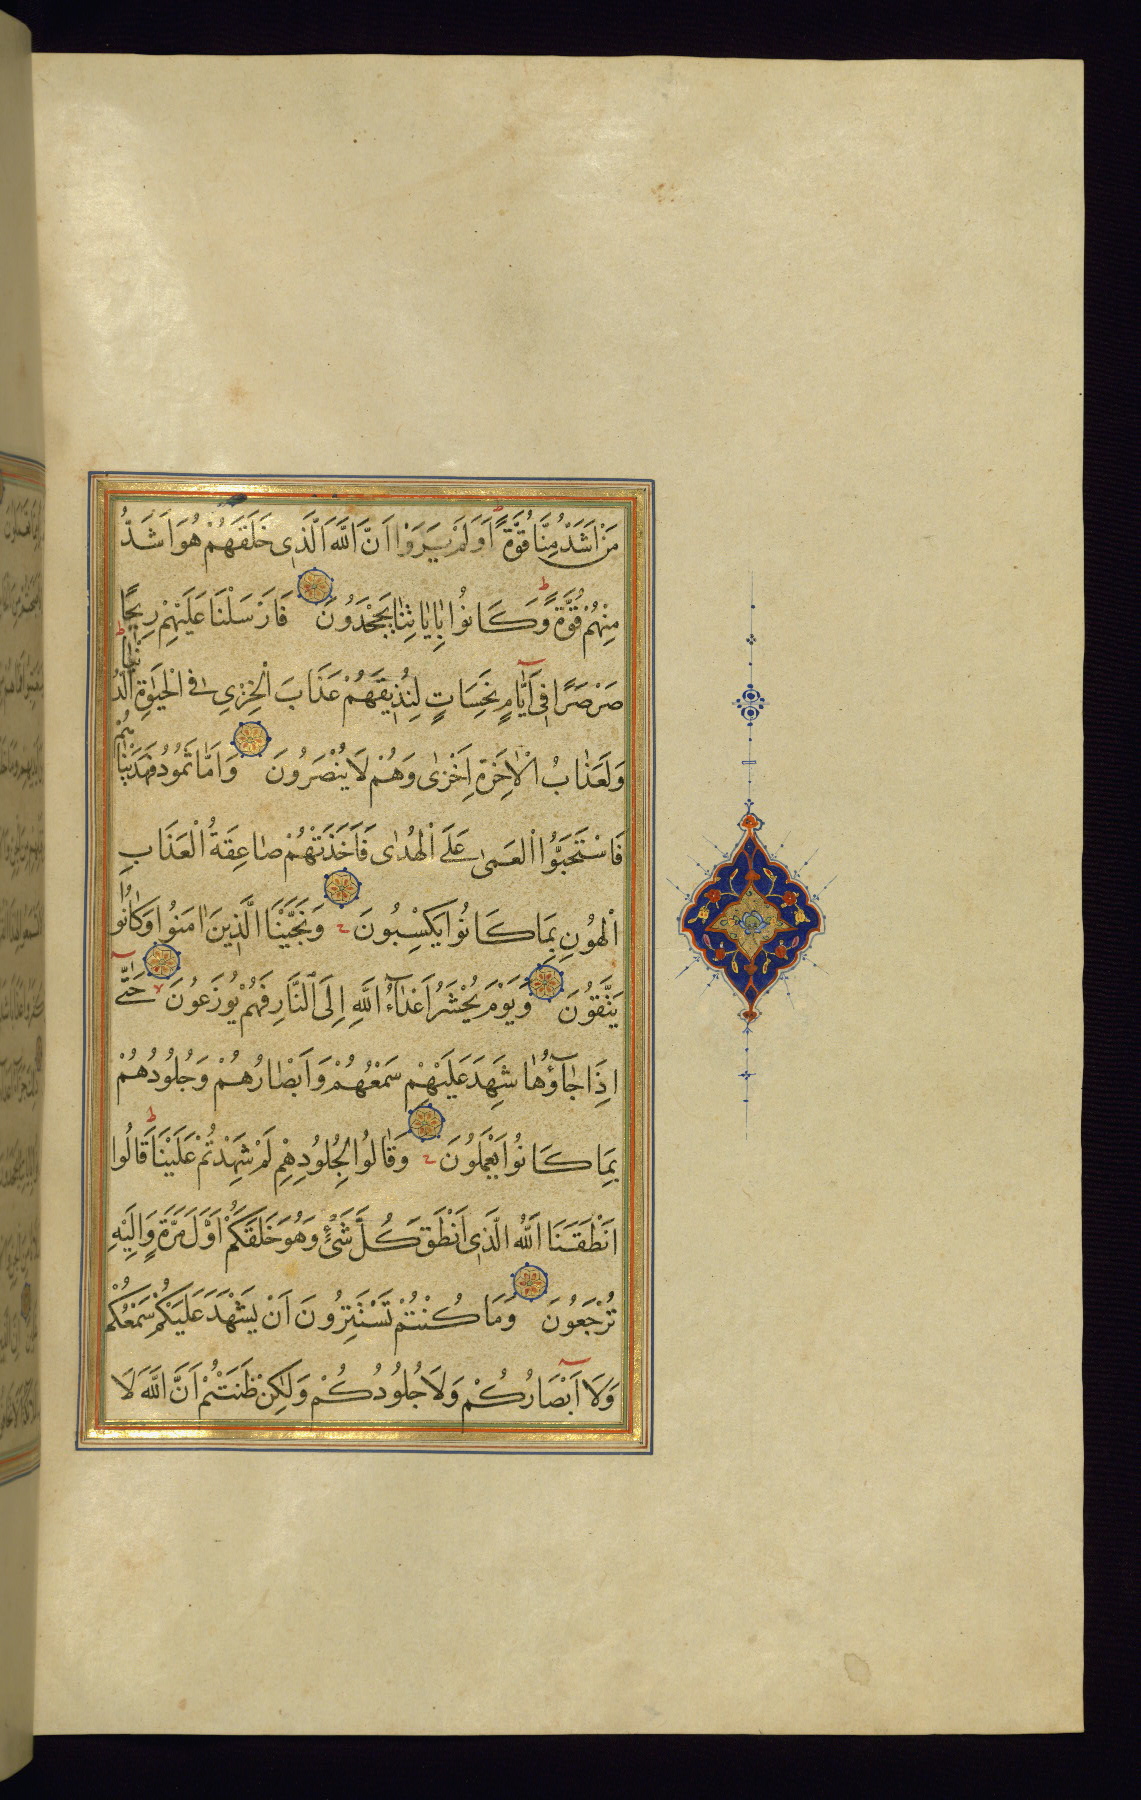 مَنْ اَشَدُّ مِنَّا قُوَّةً اَوَلَمْ يَرَوْا اَنَّ اللَّهَ الَّذِى خَلَقَهُمْ هُوَ اَشَدُّ
مِنْهُمْ قُوَّةً وَكَانُوا بِاٰيَاتِنَا يَجْحَدُونَ فَاَرْسَلْنَا عَلَيْهِمْ رِيحًا
صَرْصَرًا فِى اَيَّامٍ نَحِسَاتٍ لِنُذِيقَهُمْ عَذَابَ الْخِزْىِ فِى الْحَيٰوةِ الدُّنْيَا
وَلَعَذَابُ الْاٰخِرَةِ اَخْزٰى وَهُمْ لَا يُنْصَرُونَ وَاَمَّا ثَمُودُ فَهَدَيْنَاهُمْ
فَاسْتَحَبُّوا الْعَمٰى عَلَى الْهُدٰى فَاَخَذَتْهُمْ صَاعِقَةُ الْعَذَابِ
الْهُونِ بِمَا كَانُوا يَكْسِبُونَ وَنَجَّيْنَا الَّذِينَ اٰمَنُوا وَكَانُوا
يَتَّقُونَ وَيَوْمَ يُحْشَرُ اَعْدَآءُ اللَّهِ اِلَى النَّارِ فَهُمْ يُوزَعُونَ حَتّٰى
اِذَا جَآؤُهَا شَهِدَ عَلَيْهِمْ سَمْعُهُمْ وَاَبْصَارُهُمْ وَجُلُودُهُمْ
بِمَا كَانُوا يَعْمَلُونَ وَقَالُوا لِجُلُودِهِمْ لِمَ شَهِدْتُمْ عَلَيْنَا قَالُوا
اَنْطَقَنَا اللَّهُ الَّذِى اَنْطَقَ كُلَّ شَىْءٍ وَهُوَ خَلَقَكُمْ اَوَّلَ مَرَّةٍ وَاِلَيْهِ
تُرْجَعُونَ وَمَا كُنْتُمْ تَسْتَتِرُونَ اَنْ يَشْهَدَ عَلَيْكُمْ سَمْعُكُمْ
وَلَا اَبْصَارُكُمْ وَلَا جُلُودُكُمْ وَلٰكِنْ ظَنَنْتُمْ اَنَّ اللَّهَ لَا